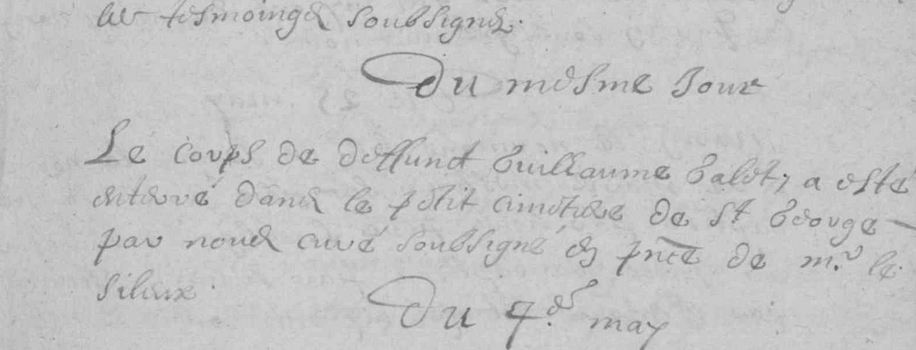 les tesmoings soubsignez.
Du mesme Jour
Le corps de deffunct Guillaume Galet, a esté
enterré dans le petit cimetiere de St George
par nous curé soubsigné en pnce de mr. le
Du 7e. may